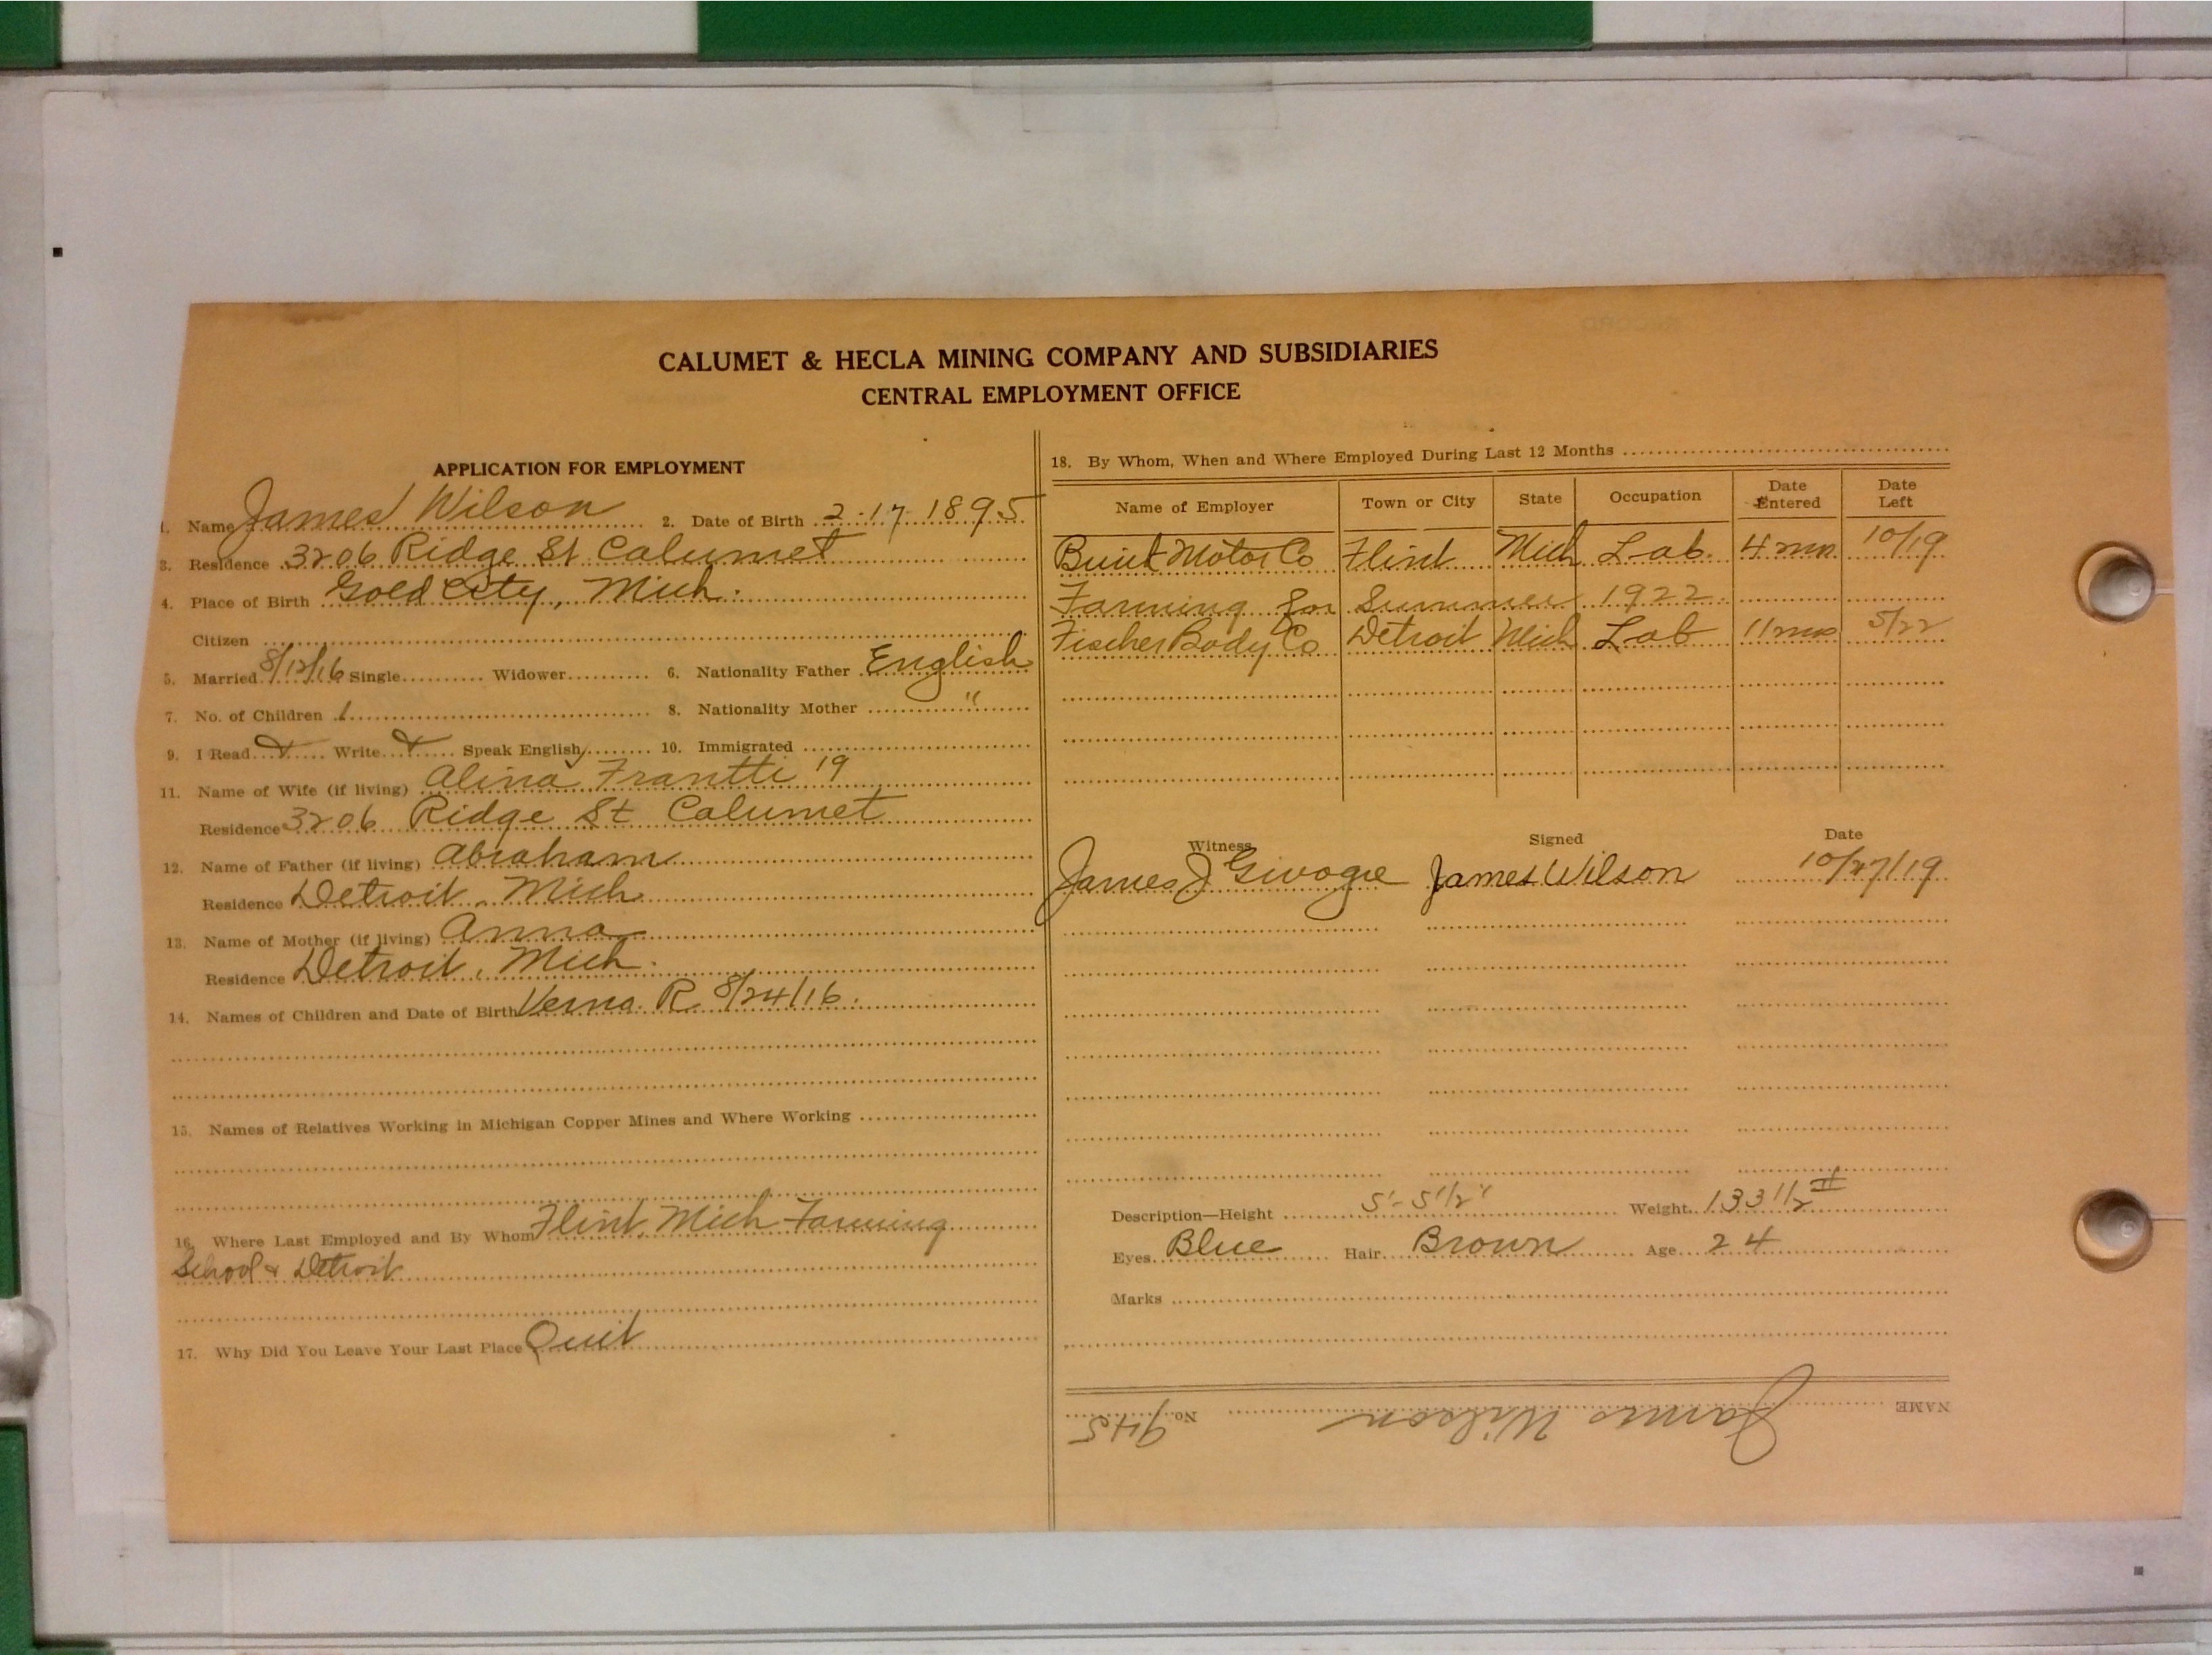 CALUMET & HECLA MINING COMPANY AND SUBSIDIARIES
CENTRAL EMPLOYMENT OFFICE
APPLICATION FOR EMPLOYMENT
1. Name James Wilson 2. Date of Birth 2-17-1895
3. Residence 3206 Ridge St Calumet
4. Place of Birth Gold City, Mich.
Citizen
5. Married 8/12/16 Single Widower 6. Nationality Father English
7. No. of Children 1 8. Nationality Mother "
9. I Read Write Speak English 10. Immigrated
11. Name of Wife (if living) Alina Frantti 19
Residence 3206 Ridge St Calumet
12. Name of Father (if living) Abraham
Residence Detroit, Mich
13. Name of Mother (if living) Anna
Residence Detroit, Mich.
14. Names of Children and Date of Birth Verna R. 8/24/16.
15. Names of Relatives Working in Michigan Copper Mines and Where Working
16. Where Last Employed and By Whom Flint, Mich Farming
School & Detroit
17. Why Did You Leave Your Last Place Quit
18. By Whom, When and Where Employed During Last 12 Months
Name of Employer Town or City State Occupation Date Entered Date Left
Buick Motor Co Flint Mich Lab. 4 mos 10/19
Farming for Summer 1922
Fischer Body Co Detroit Mich Lab 11 mos 5/22
Witness Signed Date
James J James Wilson 10/27/19
Description—Height 5'-5 1/2" Weight 133 1/2 #
Eyes Blue Hair Brown Age 24
Marks
NAME James Wilson No. 945